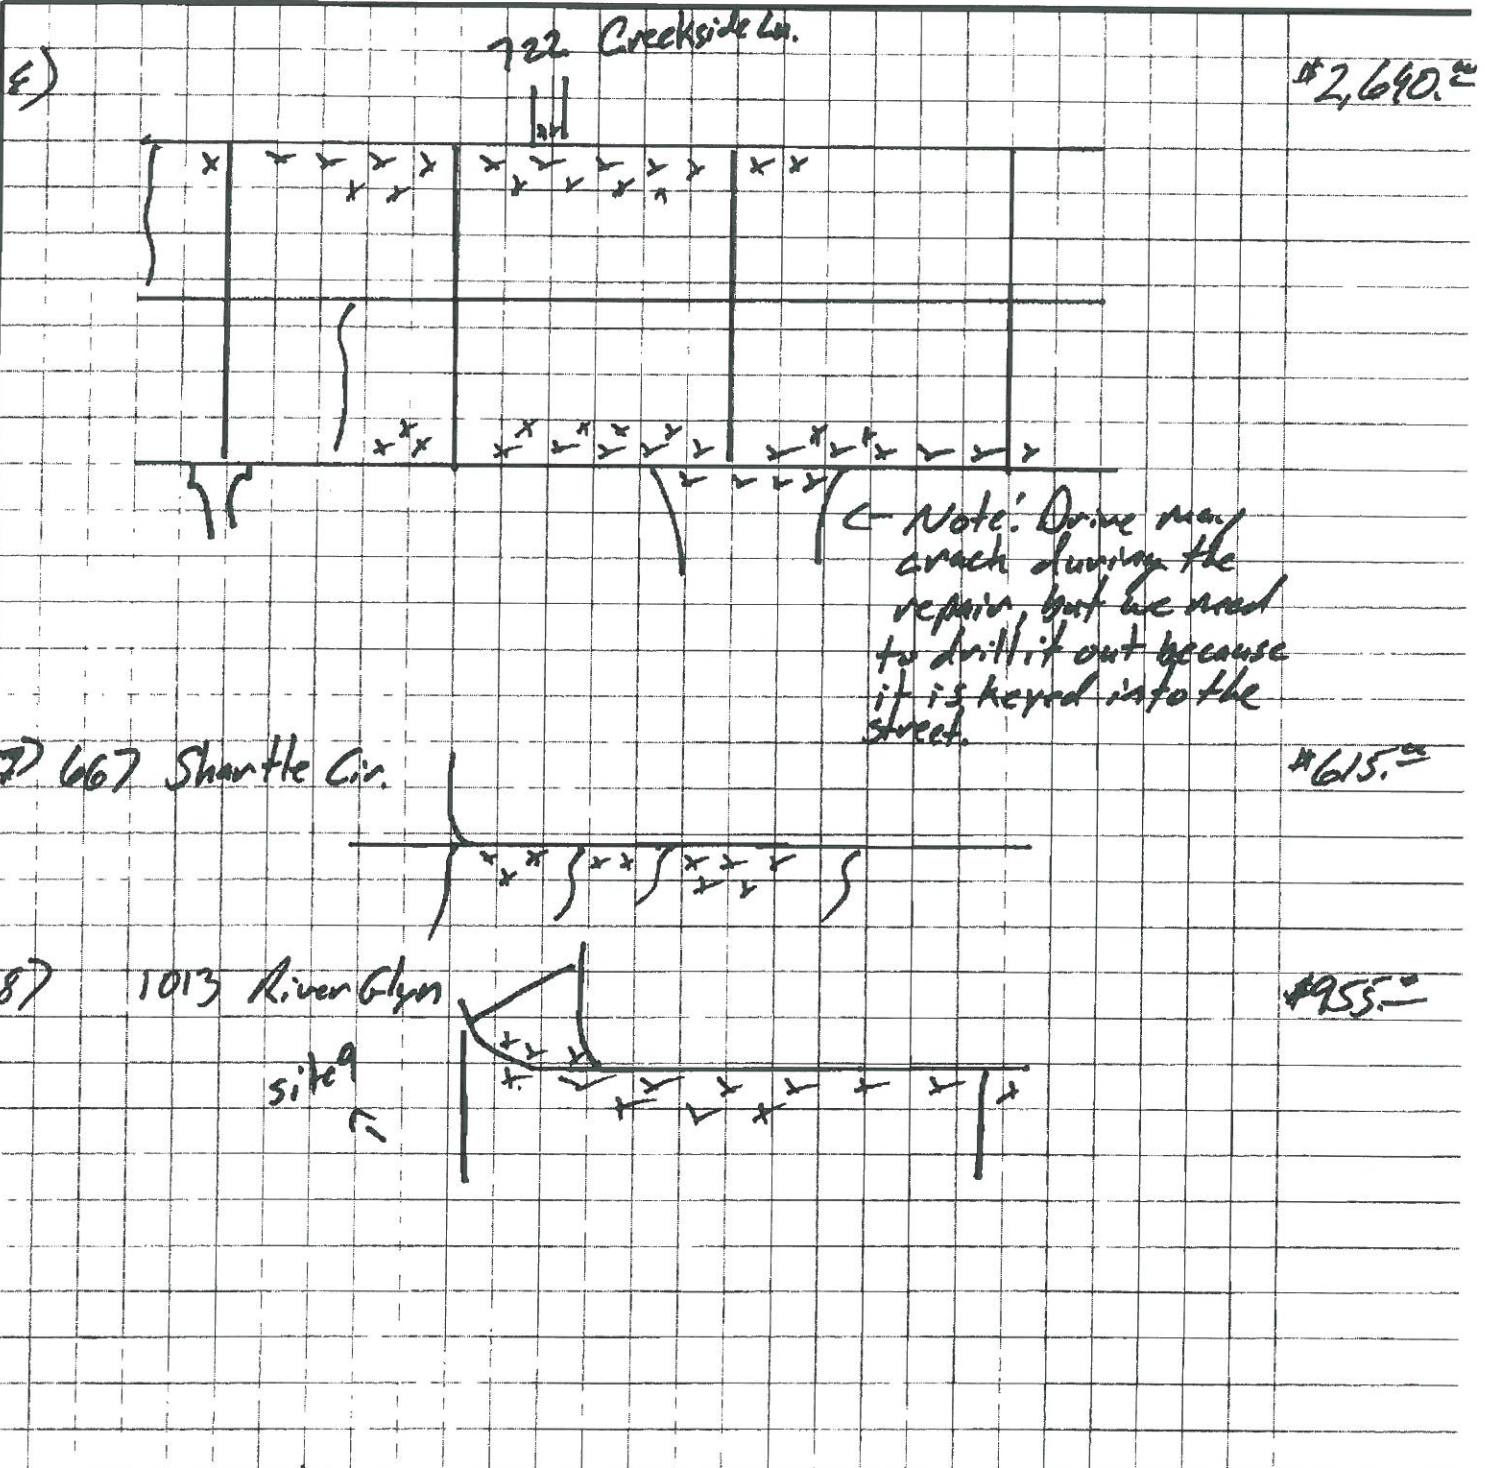 722 Creekside Ln.
$2,690.00
← Note: Drive may
crack during the
repair, but we need
to drill it out because
it is keyed into the
street.
7) 667 Shartle Cir. $615.00
8) 1013 River Glyn $955.00
site 9